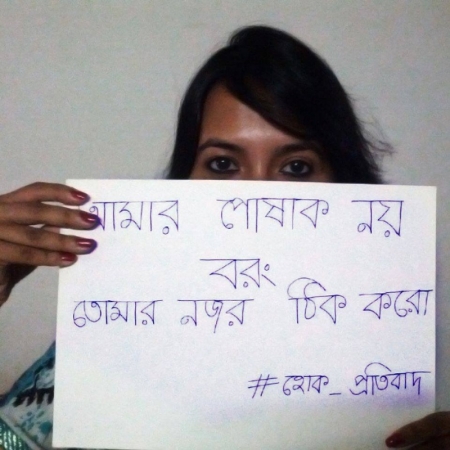 আমার পোষাক নয়
বরং
তোমার নজর ঠিক করো
#হোক_প্রতিবাদ